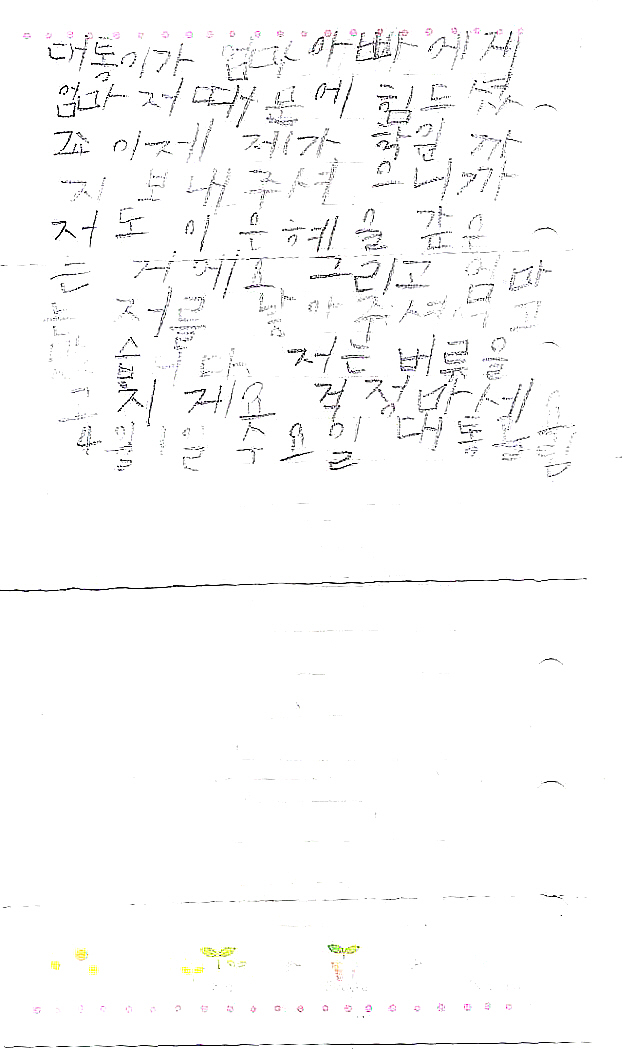 대통이가 엄마 아빠 에게
엄마 저 때 문 에 힘드셨
죠 이제 제가 학원 까
지 보내주셨 으니까
저도 이 은혜을 갚은
는 거에요 그리고 엄마
는 저를 낳아주셔서
습니다. 저는 버릇을
고치제욧 걱정마세요
4월1일 수요일 대통